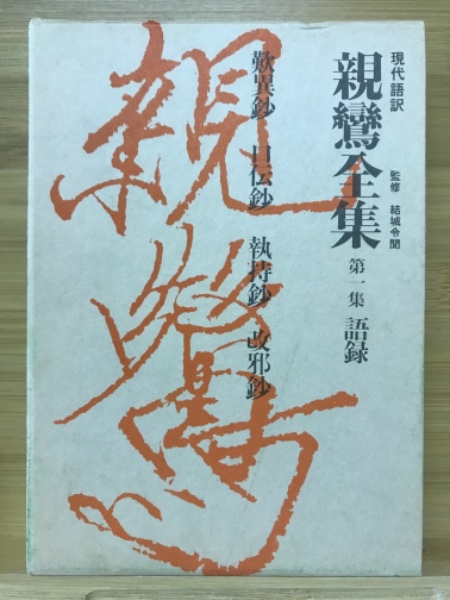 現代語訳
親鸞全集
監修 結城令聞
第一集 語録
歎異鈔 口伝鈔 執持鈔 改邪鈔
親鸞